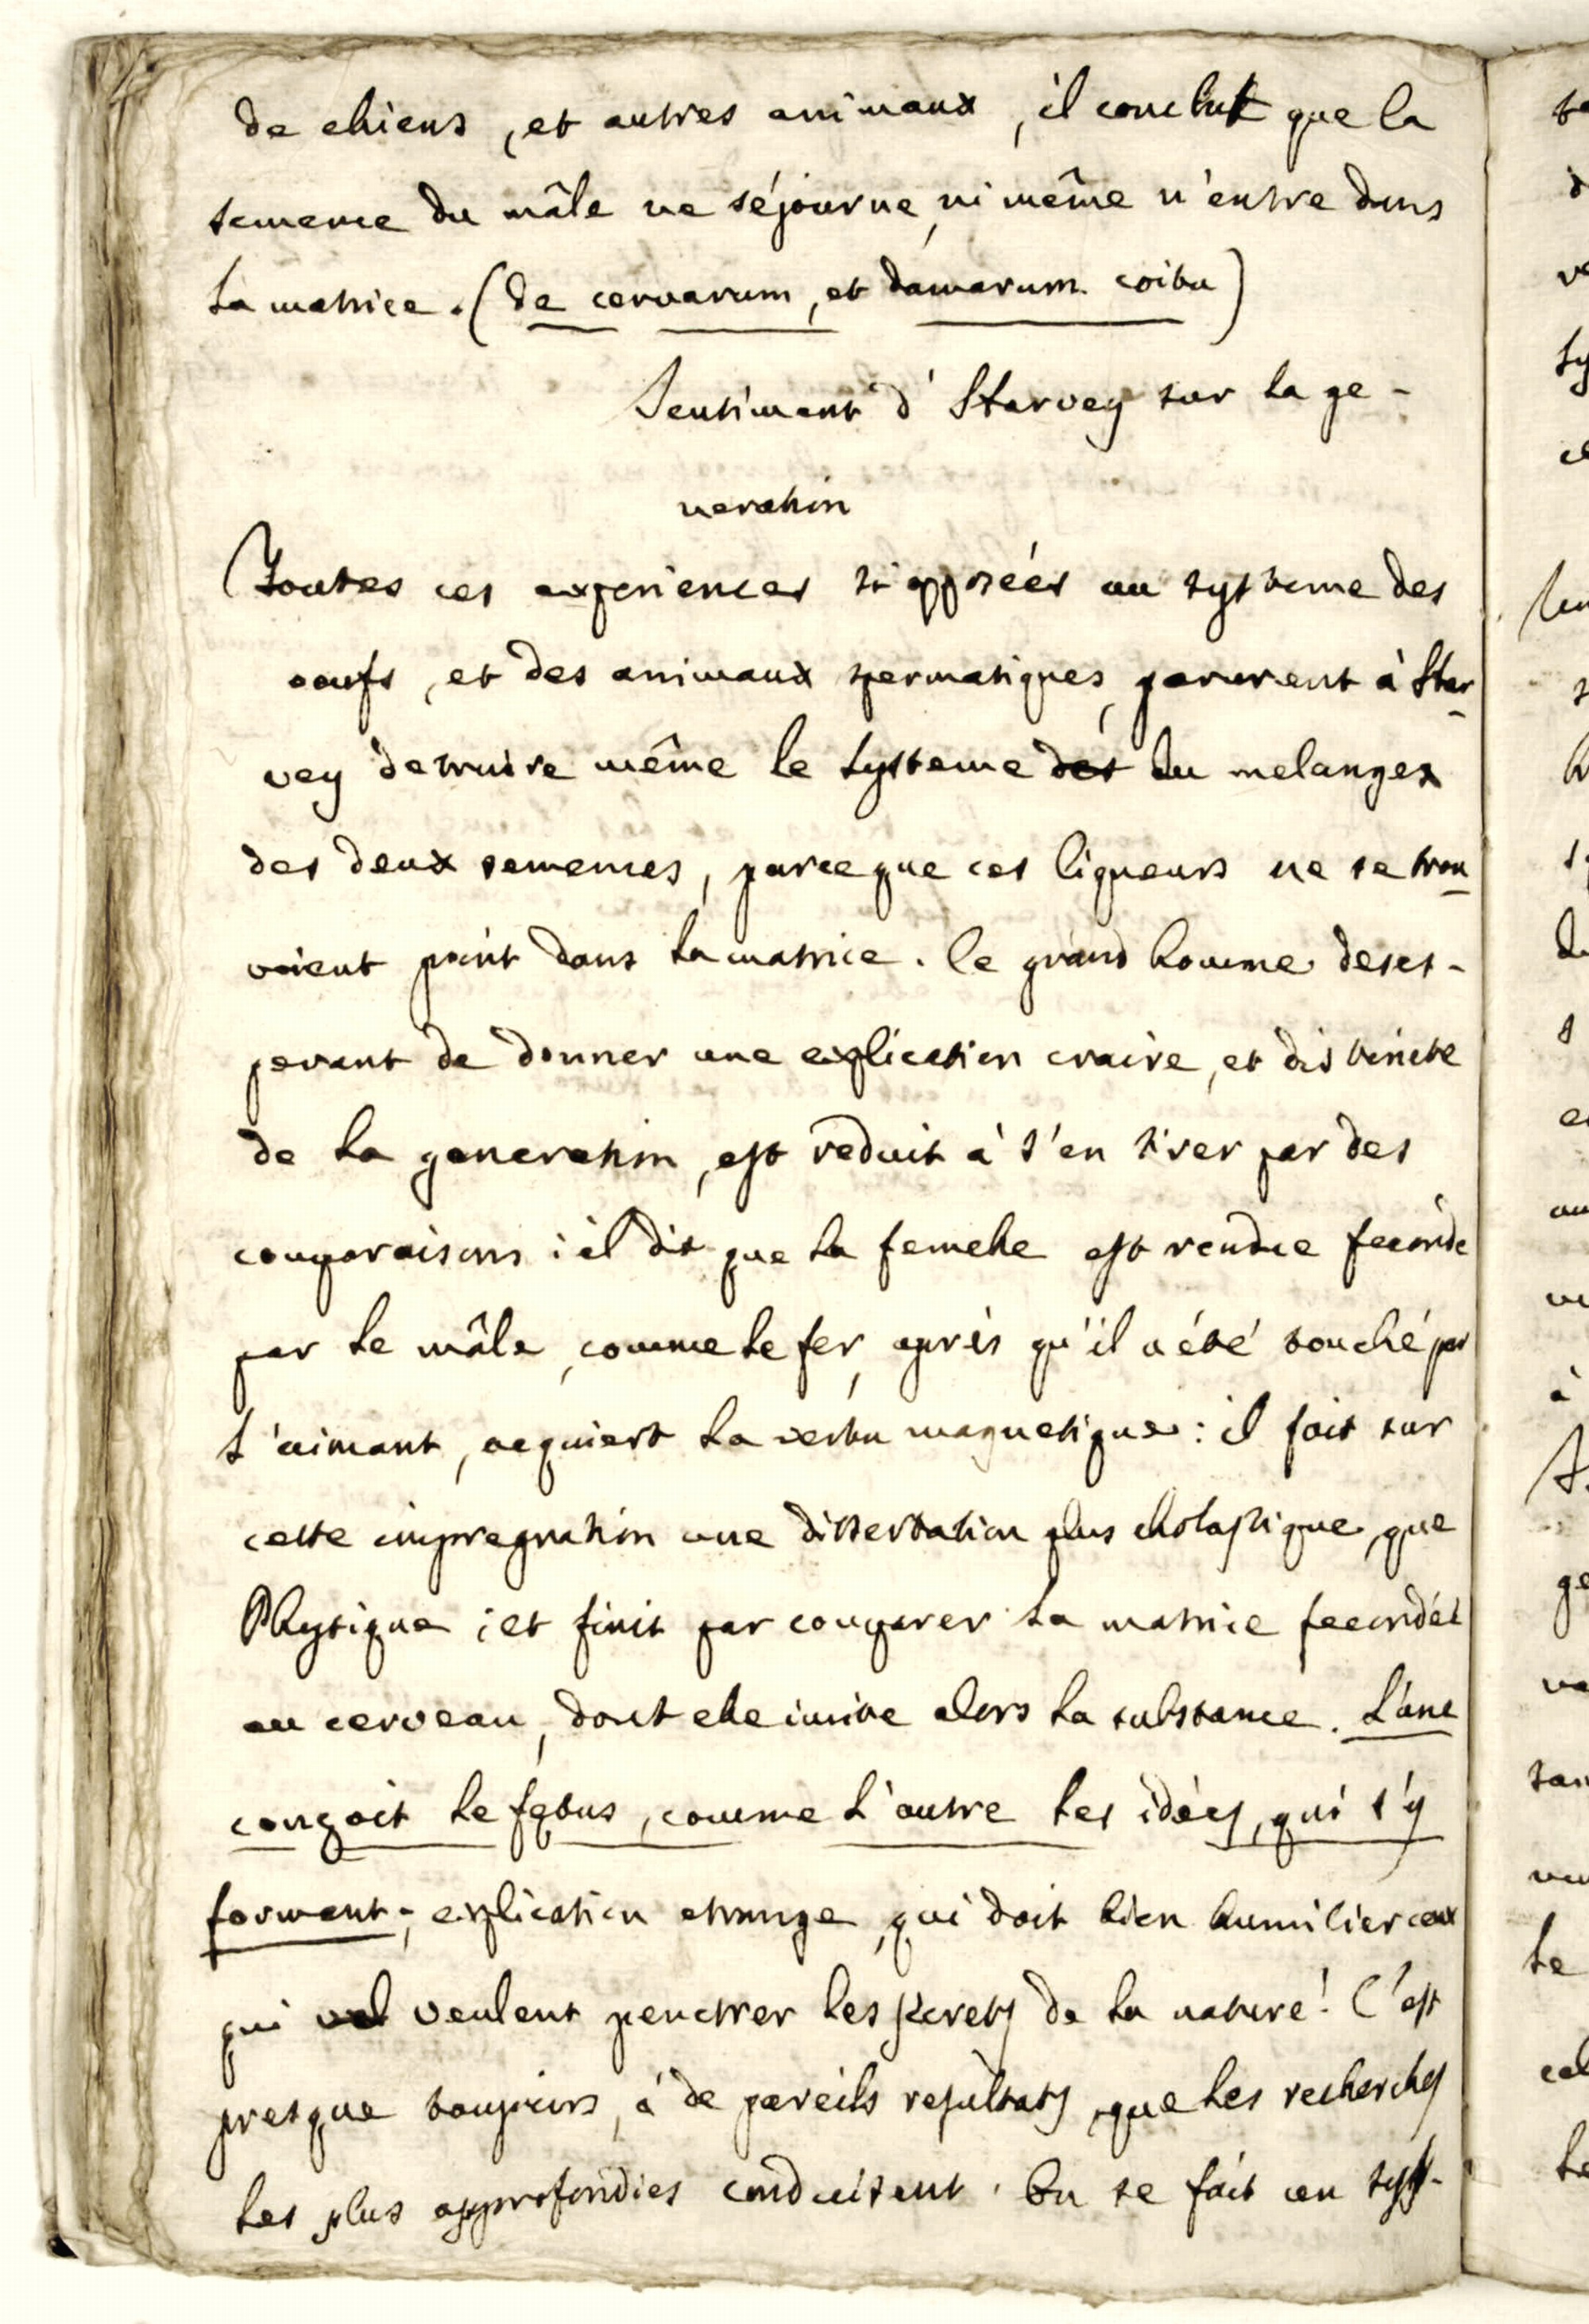 de chiens, et autres animaux, il conclut que la
semence du mâle ne séjourne, ni même n'entre dans
la matrice. (de cervarum, et damarum coitu)
Sentiment d'Harvey sur la ge-
neration
Toutes ces experiences si opposées au systeme des
oeufs, et des animaux spermatiques, parurent à Har
vey detruire même le systeme des du melanges
des deux semences, parceque ces liqueurs ne se trou
voient point dans la matrice. Ce grand homme deses-
perant de donner une explication craire, et distincte
de la generation, est reduit à s'en tirer par des
comparaisons : il dit que la femelle est rendue feconde
par le mâle, comme le fer, après qu'il a été touché par
l'aimant, acquiert la vertu magnetique : il fait sur
cette impregnation une dissertation plus cholastique, que
Physique ; et finit par comparer la matrice fecondée
au cerveau, dont elle imite alors la substance. L'une
conçoit le fętus, comme l'autre les idées, qui s'y
forment ; explication etrange, qui doit bien humilier ceux
qui vel veulent penetrer les secrets de la nature ! C'est
presque toujours, à de pareils resultats, que les recherches
les plus approfondies conduisent. On se fait un syst-